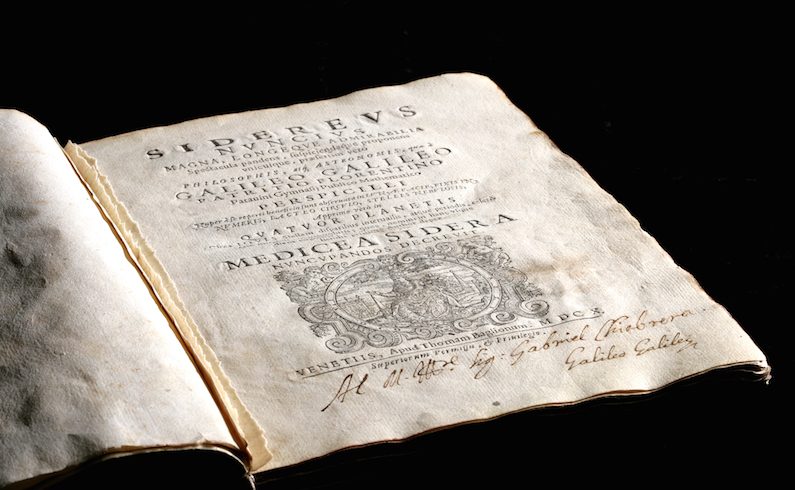 SIDEREVS
NVNCIVS
MAGNA, LONGEQVE ADMIRABILIA
Spectacula pandens, suspiciendaque proponens
vnicuique, præsertim verò
PHILOSOPHIS, atq; ASTRONOMIS, quæ à
GALILEO GALILEO
PATRITIO FLORENTINO
Patauini Gymnasij Publico Mathematico
PERSPICILLI
LACTEO CIRCVLO, STELLIS NEBVLOSIS,
Apprime verò in
QVATVOR PLANETIS
MEDICEA SIDERA
NVNCVPANDOS DECREVIT
VENETIIS, Apud Thomam Baglionum. MDCX
Superiorum Permissu, & Priuilegio.
Al Sig. Gabriel Chiabrera
Galileo Galilei